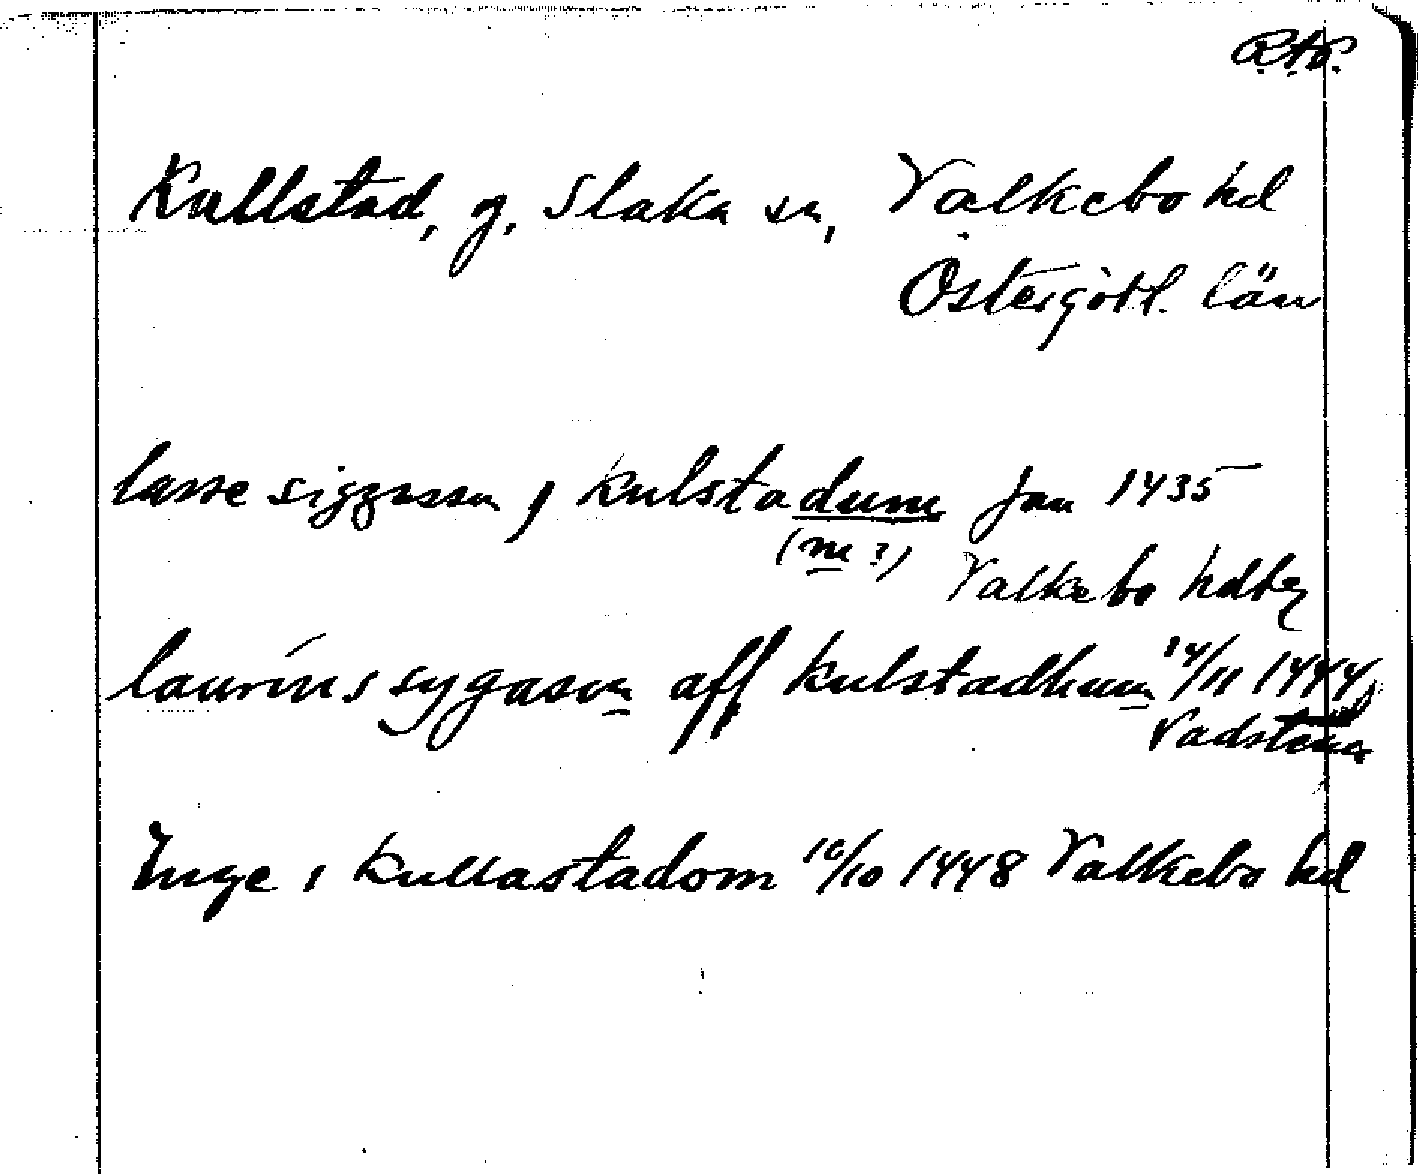 R.A.P.
Kullstad, g, Slaka sn, Valkebo hd
Östergötl. län
lasse siggasson j kulstadum jan 1435
(m?)
Valkebo hdbg
laurins sygason aff kulstadhum 14/11 1444,
Vadstena
Inge i kullastadom 10/10 1448 Valkebo hd